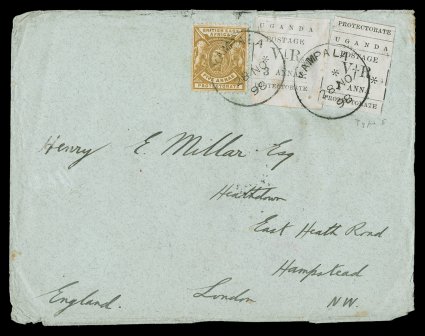 BRITISH EAST
AFRICA
FIVE ANNAS
PROTECTORATE
UGANDA
POSTAGE
V R
3
ANNAS
PROTECTORATE
PROTECTORATE
UGANDA
POSTAGE
V R
1
ANNA
PROTECTORATE
KAMPALA
28 NO
98
KAMPALA
28 NO
98
Henry E. Millar Esq
Heathdown
East Heath Road
Hampstead
England. London NW.